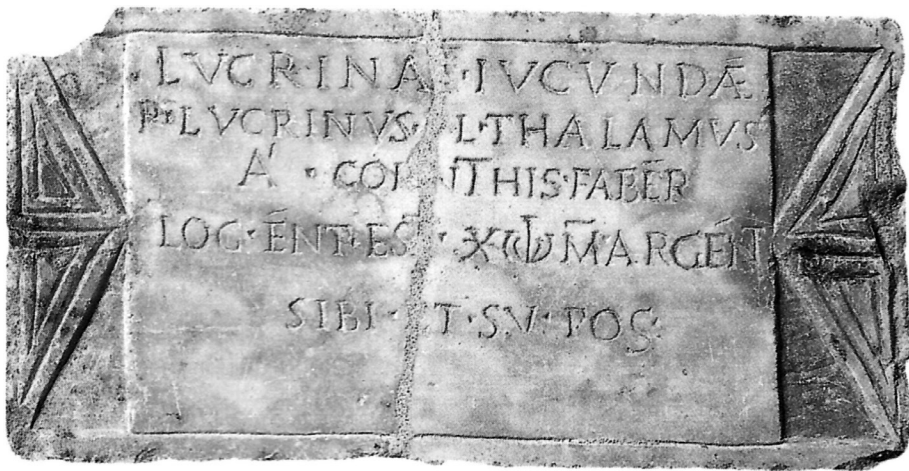 LVCRINAE·IVCVNDÆ
P·LVCRINVS· L·THALAMVS
A · CORINTHIS·FABER
LOC· EST· ARGENT
SIBI·ET·SV·POS·